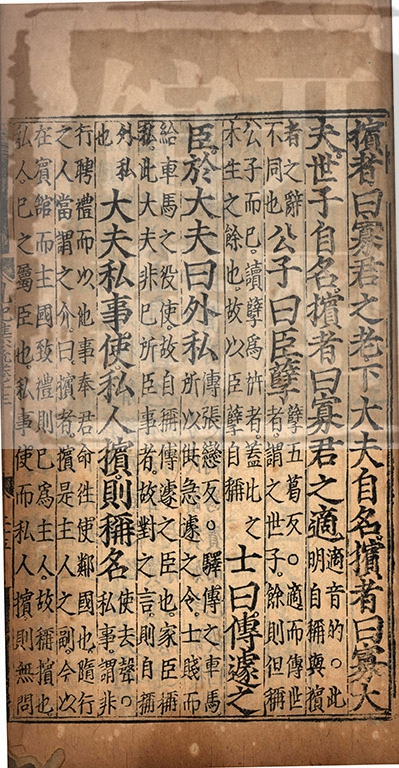 擯者曰寡君之老下大夫自名擯者曰寡大
夫世子自名擯者曰寡君之適適音的○此
明自稱與擯
者之辭
不同也公子曰臣孼孼五葛反○適而傳世
者謂之世子餘則但稱
公子而已讀孼為枿者蓋此之
木生之餘也故以臣孼自稱士曰傳遽之
臣於大夫曰外私傳張戀反○驛傳之車馬
所以供急遽之令士賤而
給車馬之役使故自稱傳遽之臣也家臣稱
私此大夫非已所臣事者故對之言則自稱
外私
也大夫私事使私人擯則稱名使去聲○
私事謂非
行聘禮而以他事奉君命往使鄰國也隨行
之人當謂之介曰擯者擯是主人之副今以
在賓館而主國致禮則已為主人故稱擯也
私人已之屬臣也私事使而私人擯則無問